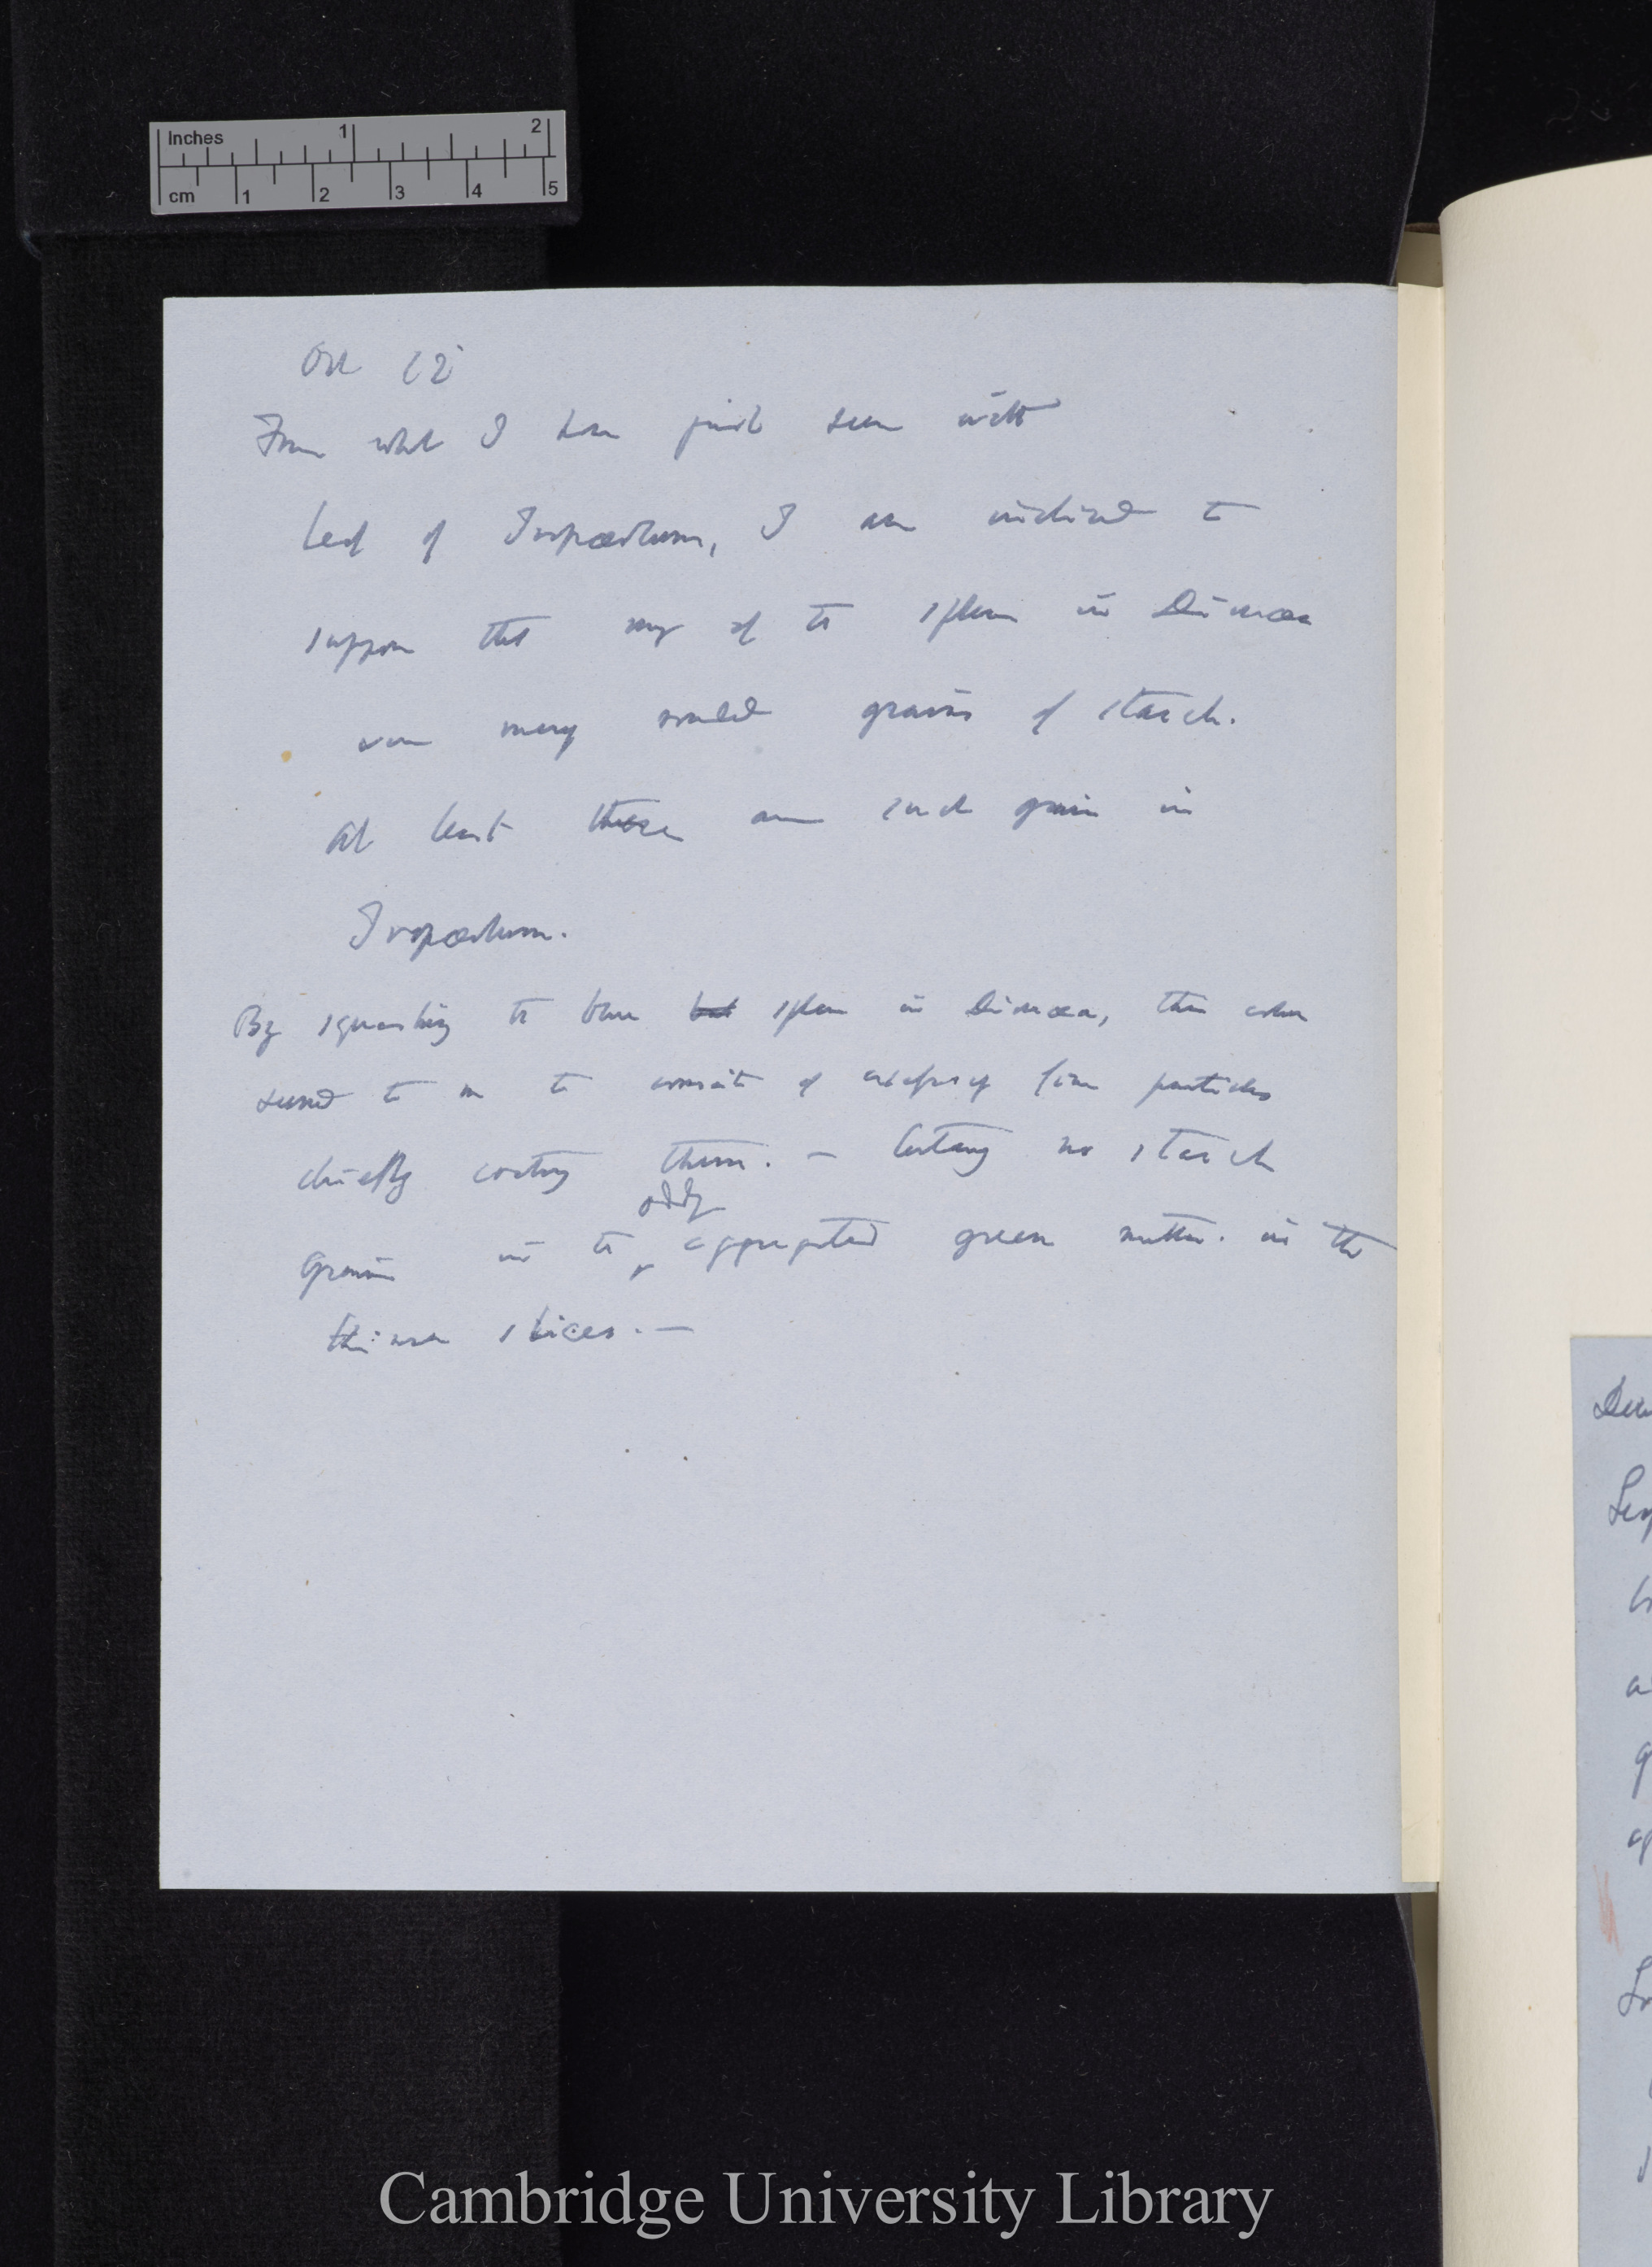 Inches 1 2
cm 1 2 3 4 5
Oct 12
From what I have just seen with
leaf of Tropæolum, I am inclined to
suppose that many of the spheres in Dionæa
were many small grains of starch.
At least there are such grains in
Tropæolum.
By squashing the blue but spheres in Dionæa, their colour
seemed to me to consist of excessively fine particles
chiefly coating them. — Certainly no starch
oddly
grains in the aggregated green matter. in the
thinner slices. —
Cambridge University Library